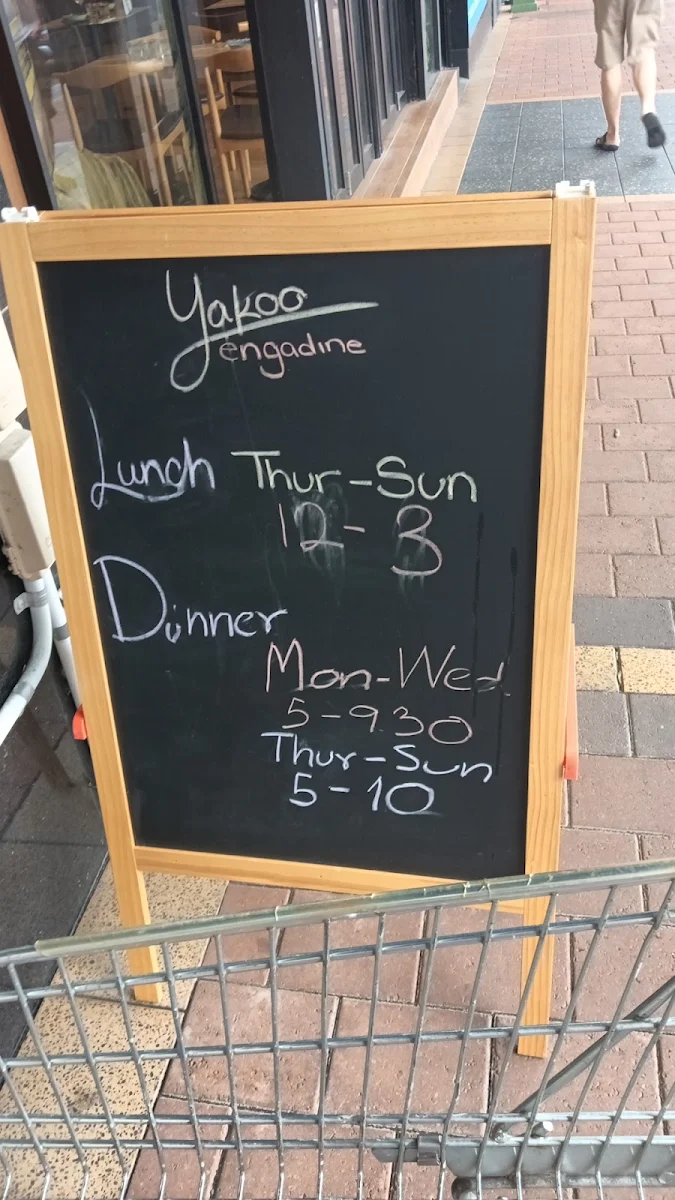 Yakoo
engadine
Lunch Thur-Sun
12-3
Dinner
Mon-Wed
5-930
Thur-Sun
5-10